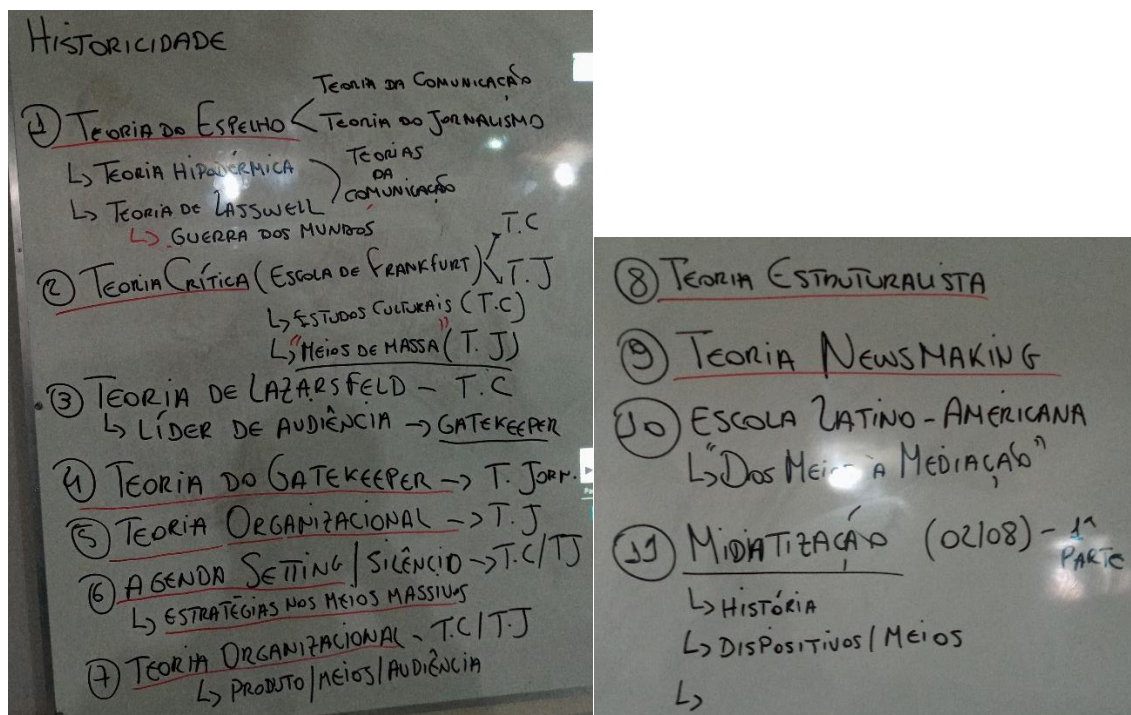 HISTORICIDADE
① TEORIA DO ESPELHO < TEORIA DA COMUNICAÇÃO
TEORIA DO JORNALISMO
↳ TEORIA HIPODÉRMICA
↳ TEORIA DE LASSWELL
TEORIAS
DA
COMUNICAÇÃO
↳ GUERRA DOS MUNDOS
② TEORIA CRÍTICA (ESCOLA DE FRANKFURT) < T.C
T.J
↳ ESTUDOS CULTURAIS (T.C)
↳ "MEIOS DE MASSA" (T.J)
③ TEORIA DE LAZARSFELD - T.C
↳ LÍDER DE AUDIÊNCIA → GATEKEEPER
④ TEORIA DO GATEKEEPER → T. JORN.
⑤ TEORIA ORGANIZACIONAL → T.J
⑥ AGENDA SETTING / SILÊNCIO → T.C/TJ
↳ ESTRATÉGIAS NOS MEIOS MASSIVOS
⑦ TEORIA ORGANIZACIONAL - T.C/T.J
↳ PRODUTO/MEIOS/AUDIÊNCIA
⑧ TEORIA ESTRUTURALISTA
⑨ TEORIA NEWSMAKING
⑩ ESCOLA LATINO-AMERICANA
↳ "DOS À MEDIAÇÃO"
⑪ MIDIATIZAÇÃO (02/08) - 1ª
PARTE
↳ HISTÓRIA
↳ DISPOSITIVOS/MEIOS
↳